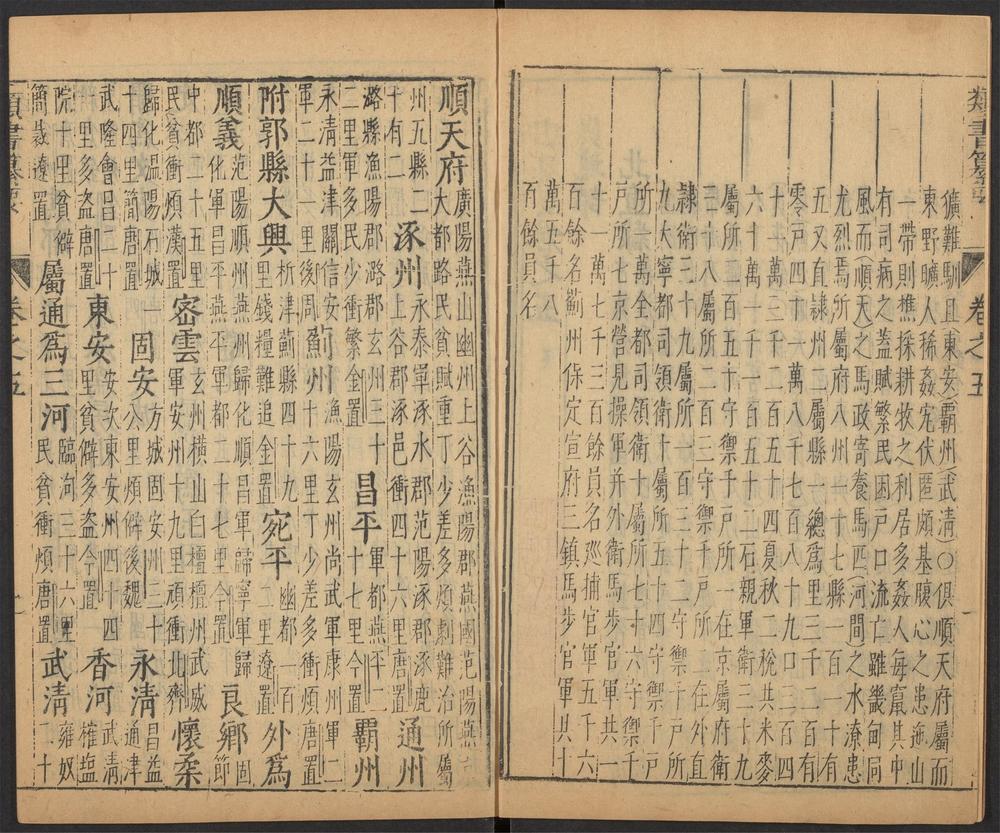 獷難馴且(東安)霸州(武清)〇俱順天府屬而
東野曠人稀姦宄伏匿頗基腹心之患迤山
一帶則樵採耕牧之利居多姦人每竄其中
有司病之蓋賦繁民困戸口流亡雖畿甸同
風而(順天)之馬政寄養馬匹(河間)之水潦患
尤烈焉所屬府八州一十七縣一百一十有
五又直隸州二屬縣一總爲里三千二百有
零戸四十一萬八千七百八十九口三百四
十萬三千二百五十四夏秋二稅共米麥
六十一萬一百五十二石親軍衛三十九
屬所二百五十守禦千戸所一在京屬府衛
三十八屬所二百三守禦千戸所二在外直
隸衛三十九屬所一百三十二守禦千戸所
九大寧都司領衛十屬所五十四守禦千戸
所一萬全都司領衛十屬所七十六守禦千
戸所七京營見操軍并外衛馬步官軍共一
十一萬七千三百餘員名巡捕官軍五千六
百餘名薊州保定宣府三鎮馬步官軍共十
萬一千八
百餘員名
類書纂要
卷之五
順天府
廣陽燕山幽州上谷漁陽郡燕國范陽燕京
大都路民貧賦重丁少差多煩劇難治所屬
州五縣二
十有二
涿州
永泰軍涿水郡范陽涿郡涿鹿
上谷郡涿邑衝四十六里唐置
通州
潞縣漁陽郡潞郡玄州三十
二里軍多民少衝繁金置
昌平
軍都燕平二
十七里今置
霸州
永清益津關信安
軍二十一里後周
薊州
漁陽玄州尚武軍康州軍二
十六里丁少差多衝煩唐置
附郭縣大興
析津薊縣四十九
里錢糧難追金置
宛平
幽都一百
二里遼置
外爲
順義
范陽順州燕州歸化順昌軍歸寧軍歸
化軍昌平燕平軍都二十七里今置
良鄉
固節
中都二十五里
民貧衝煩漢置
密雲
玄州橫山白檀檀州武威
軍安州十九里頑衝北齊
懷柔
歸化溫陽石城一
十四里簡唐置
固安
方城固安州三十
八里煩僻後魏
永清
益昌
通津
武隆會昌二十
里多盜唐置
東安
安次東安州四十四
里貧僻多盜今置
香河
武清
榷塩
院十里貧僻
簡裁遼置
屬通爲三河
臨泃三十六里
民貧衝煩唐置
武清
雍奴
二十